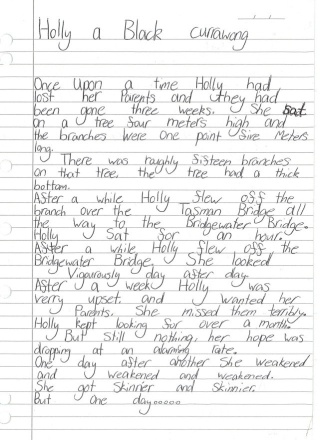 Holly a Black currawong
Once upon a time Holly had
lost her Parents and they had
been gone three weeks. She sat
on a tree four meters high and
the branches were one point five meters
long.
There was roughly sixteen branches
on that tree. the tree had a thick
bottom.
After a while Holly flew off the
branch over the Tasman Bridge all
the way to the Bridgewater Bridge.
Holly sat for an hour.
After a while Holly flew off the
Bridgewater Bridge. She looked
Vigourously day after day.
After a week Holly was
verry upset. and wanted her
Parents. She missed them terribly.
Holly kept looking for over a month.
But still nothing, her hope was
dropping at an alarming rate.
One day after another She weakened
and weakened and weakened.
She got skinnier and skinnier.
But one day.....